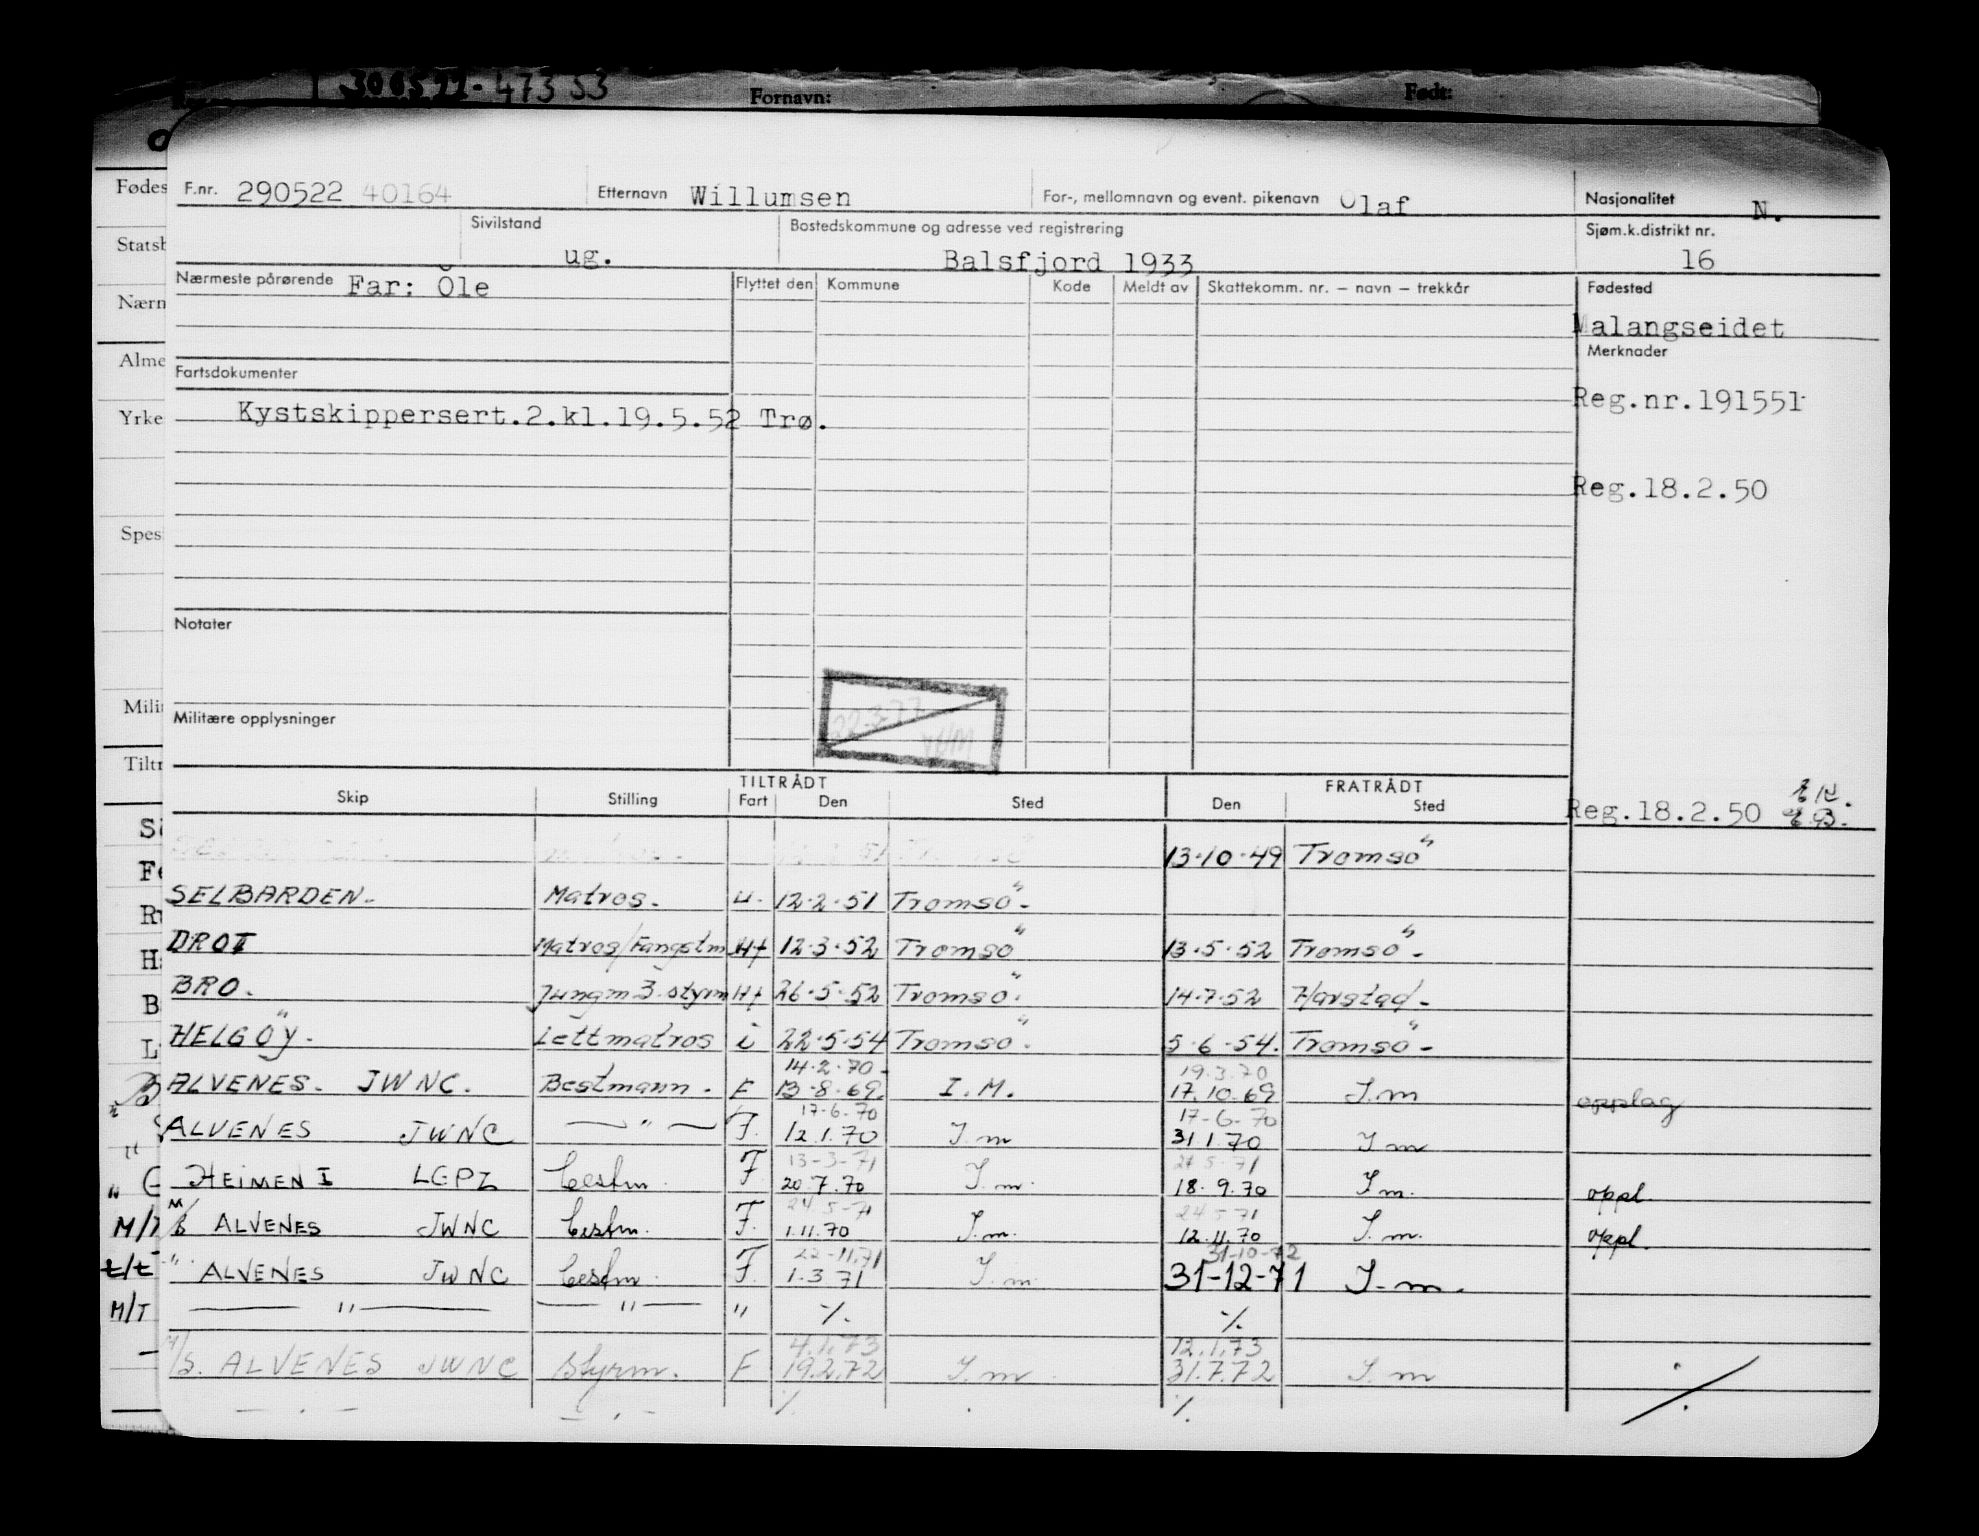 300522-473 53 Fornavn: Født:
F.nr. 290522 40164 Etternavn Willumsen For-, mellomnavn og event. pikenavn Olaf Nasjonalitet N.
Sivilstand ug. Bostedskommune og adresse ved registrering Balsfjord 1933 Sjøm.k.distrikt nr. 16
Nærmeste pårørende Far: Ole Flyttet den Kommune Kode Meldt av Skattekomm. nr. – navn – trekkår Fødested
Malangseidet
Merknader
Fartsdokumenter
Reg.nr.191551
Kystskippersert.2.kl.19.5.52 Trø.
Reg.18.2.50
Notater
22-3-77
Militære opplysninger
TILTRÅDT FRATRÅDT
Skip Stilling Fart Den Sted Den Sted
Reg.18.2.50
13.10.49 Tromsö
SELBARDEN. Matros. u. 12.2.51 Tromsö.
DROT Matros/Fangstm Hf 12.3.52 Tromsö 13.5.52 Tromsö.
BRO. Jungm 3. styrm Hf 26.5.52 Tromsö. 14.7.52 Harstad.
HELGÖY. Lettmatros i 22.5.54 Tromsö. 5.6.54. Tromsö.
14.2.70 19.3.70
ALVENES. JWNC. Bestmann. F 13.8.69. I.M. 17.10.69 I.m opplag
17-6-70 17-6-70
ALVENES JWNC — " — F. 12.1.70 I.m 31.1.70 I.m
13-3-71 21-5-71
HEIMEN I LGPZ Bestm. F 20.7.70 I.m. 18.9.70 I.m. oppl.
24-5-71 24.5.71
M/S ALVENES JWNC Bestm. F. 1.11.70 I.m. 12.11.70 I.m. oppl.
22-11.71 31-10-72
" ALVENES JWNC Bestm. F. 1.3.71 I.m. 31-12-71 I.m.
— " — — " — " ./. ./.
4.1.73 12.1.73
M/S. ALVENES JWNC Styrm. F 19.2.72 I.m 31.7.72 I.m ./.
./. ./.